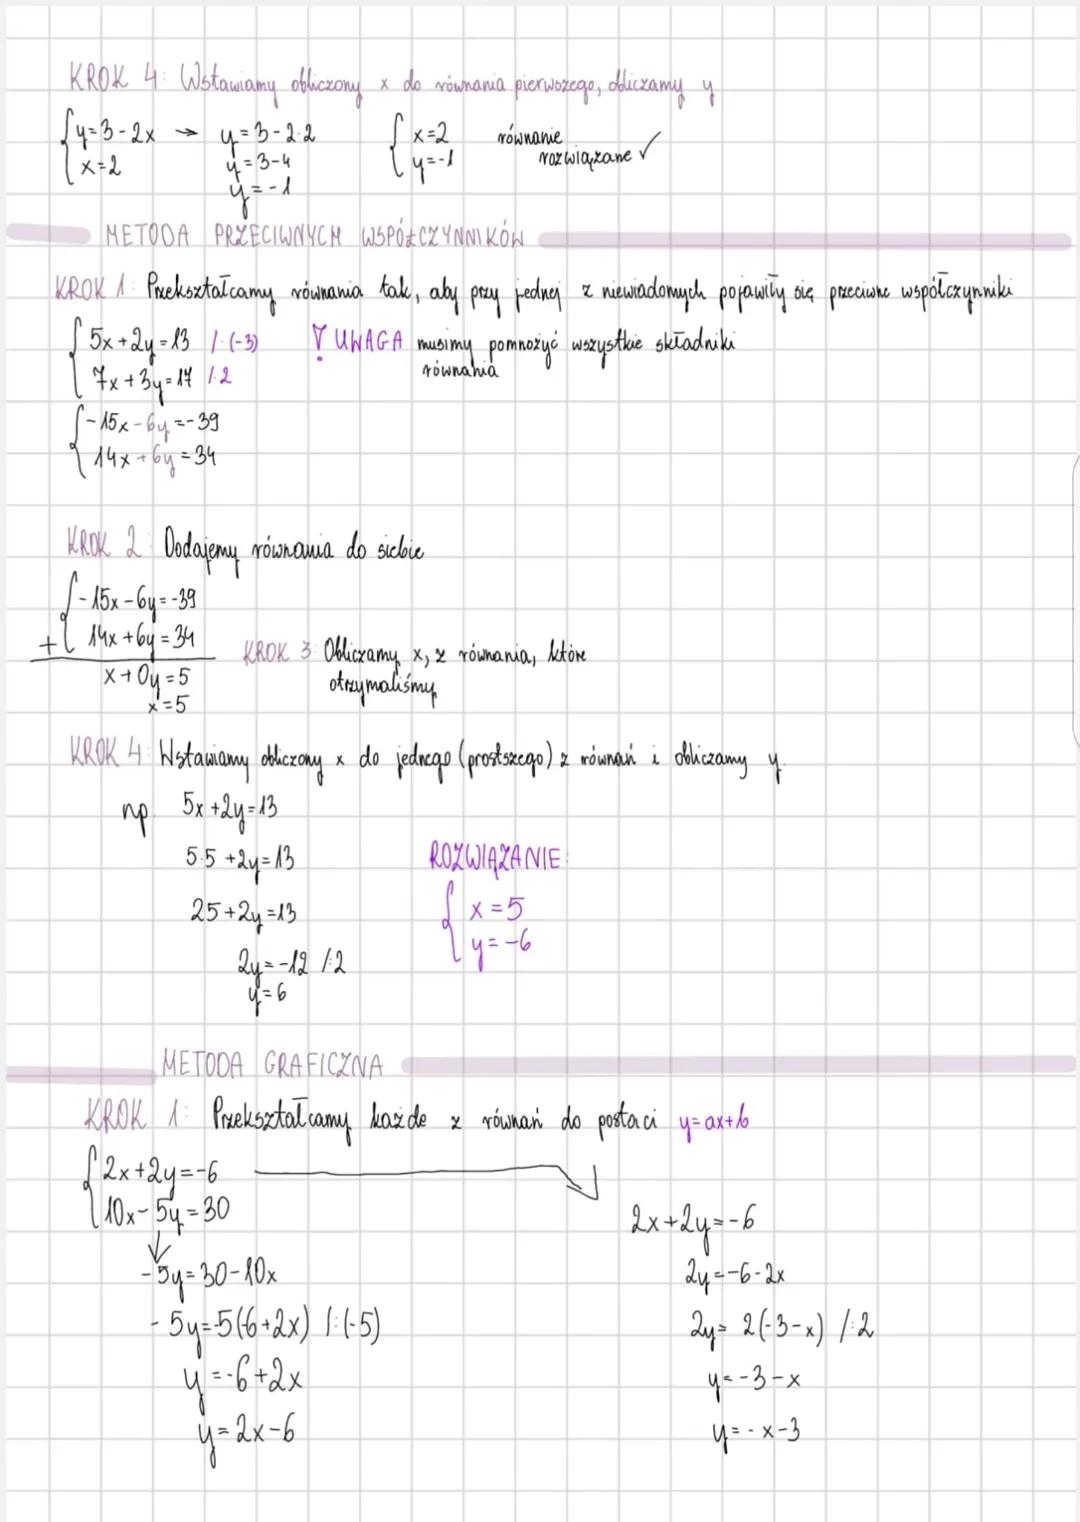 KROK 4: Wstawiamy obliczony x do równania pierwszego, obliczamy y
{y=3-2x → y=3-2·2 {x=2 równanie
x=2 y=3-4 y=-1 rozwiązane ✓
y=-1
METODA PRZECIWNYCH WSPÓŁCZYNNIKÓW
KROK 1: Przekształcamy równania tak, aby przy jednej z niewiadomych pojawiły się przeciwne współczynniki
{5x+2y=13 /·(-3) ! UWAGA musimy pomnożyć wszystkie składniki
7x+3y=17 /·2 równania
{-15x-6y=-39
14x+6y=34
KROK 2: Dodajemy równania do siebie
{-15x-6y=-39
+ 14x+6y=34
KROK 3: Obliczamy x, z równania, które
x+0y=5 otrzymaliśmy
x=5
KROK 4: Wstawiamy obliczony x do jednego (prostszego) z równań i obliczamy y.
np. 5x+2y=13
5·5+2y=13 ROZWIĄZANIE:
25+2y=13 {x=5
y=-6
2y=-12 /:2
y=6
METODA GRAFICZNA
KROK 1: Przekształcamy każde z równań do postaci y=ax+b
{2x+2y=-6
10x-5y=30 2x+2y=-6
-5y=30-10x 2y=-6-2x
-5y=-5(-6+2x) /:(-5) 2y=2(-3-x) /:2
y=-6+2x y=-3-x
y=2x-6 y=-x-3